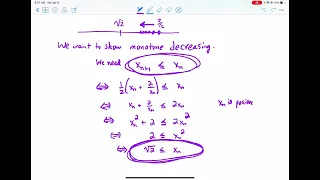 √2 ← 3/2
We want to show monotone decreasing.
We need x_{n+1} ≤ x_n
⇔ 1/2 (x_n + 2/x_n) ≤ x_n
⇔ x_n + 2/x_n ≤ 2x_n x_n is positive
⇔ x_n^2 + 2 ≤ 2x_n^2
⇔ 2 ≤ x_n^2
⇔ √2 ≤ x_n